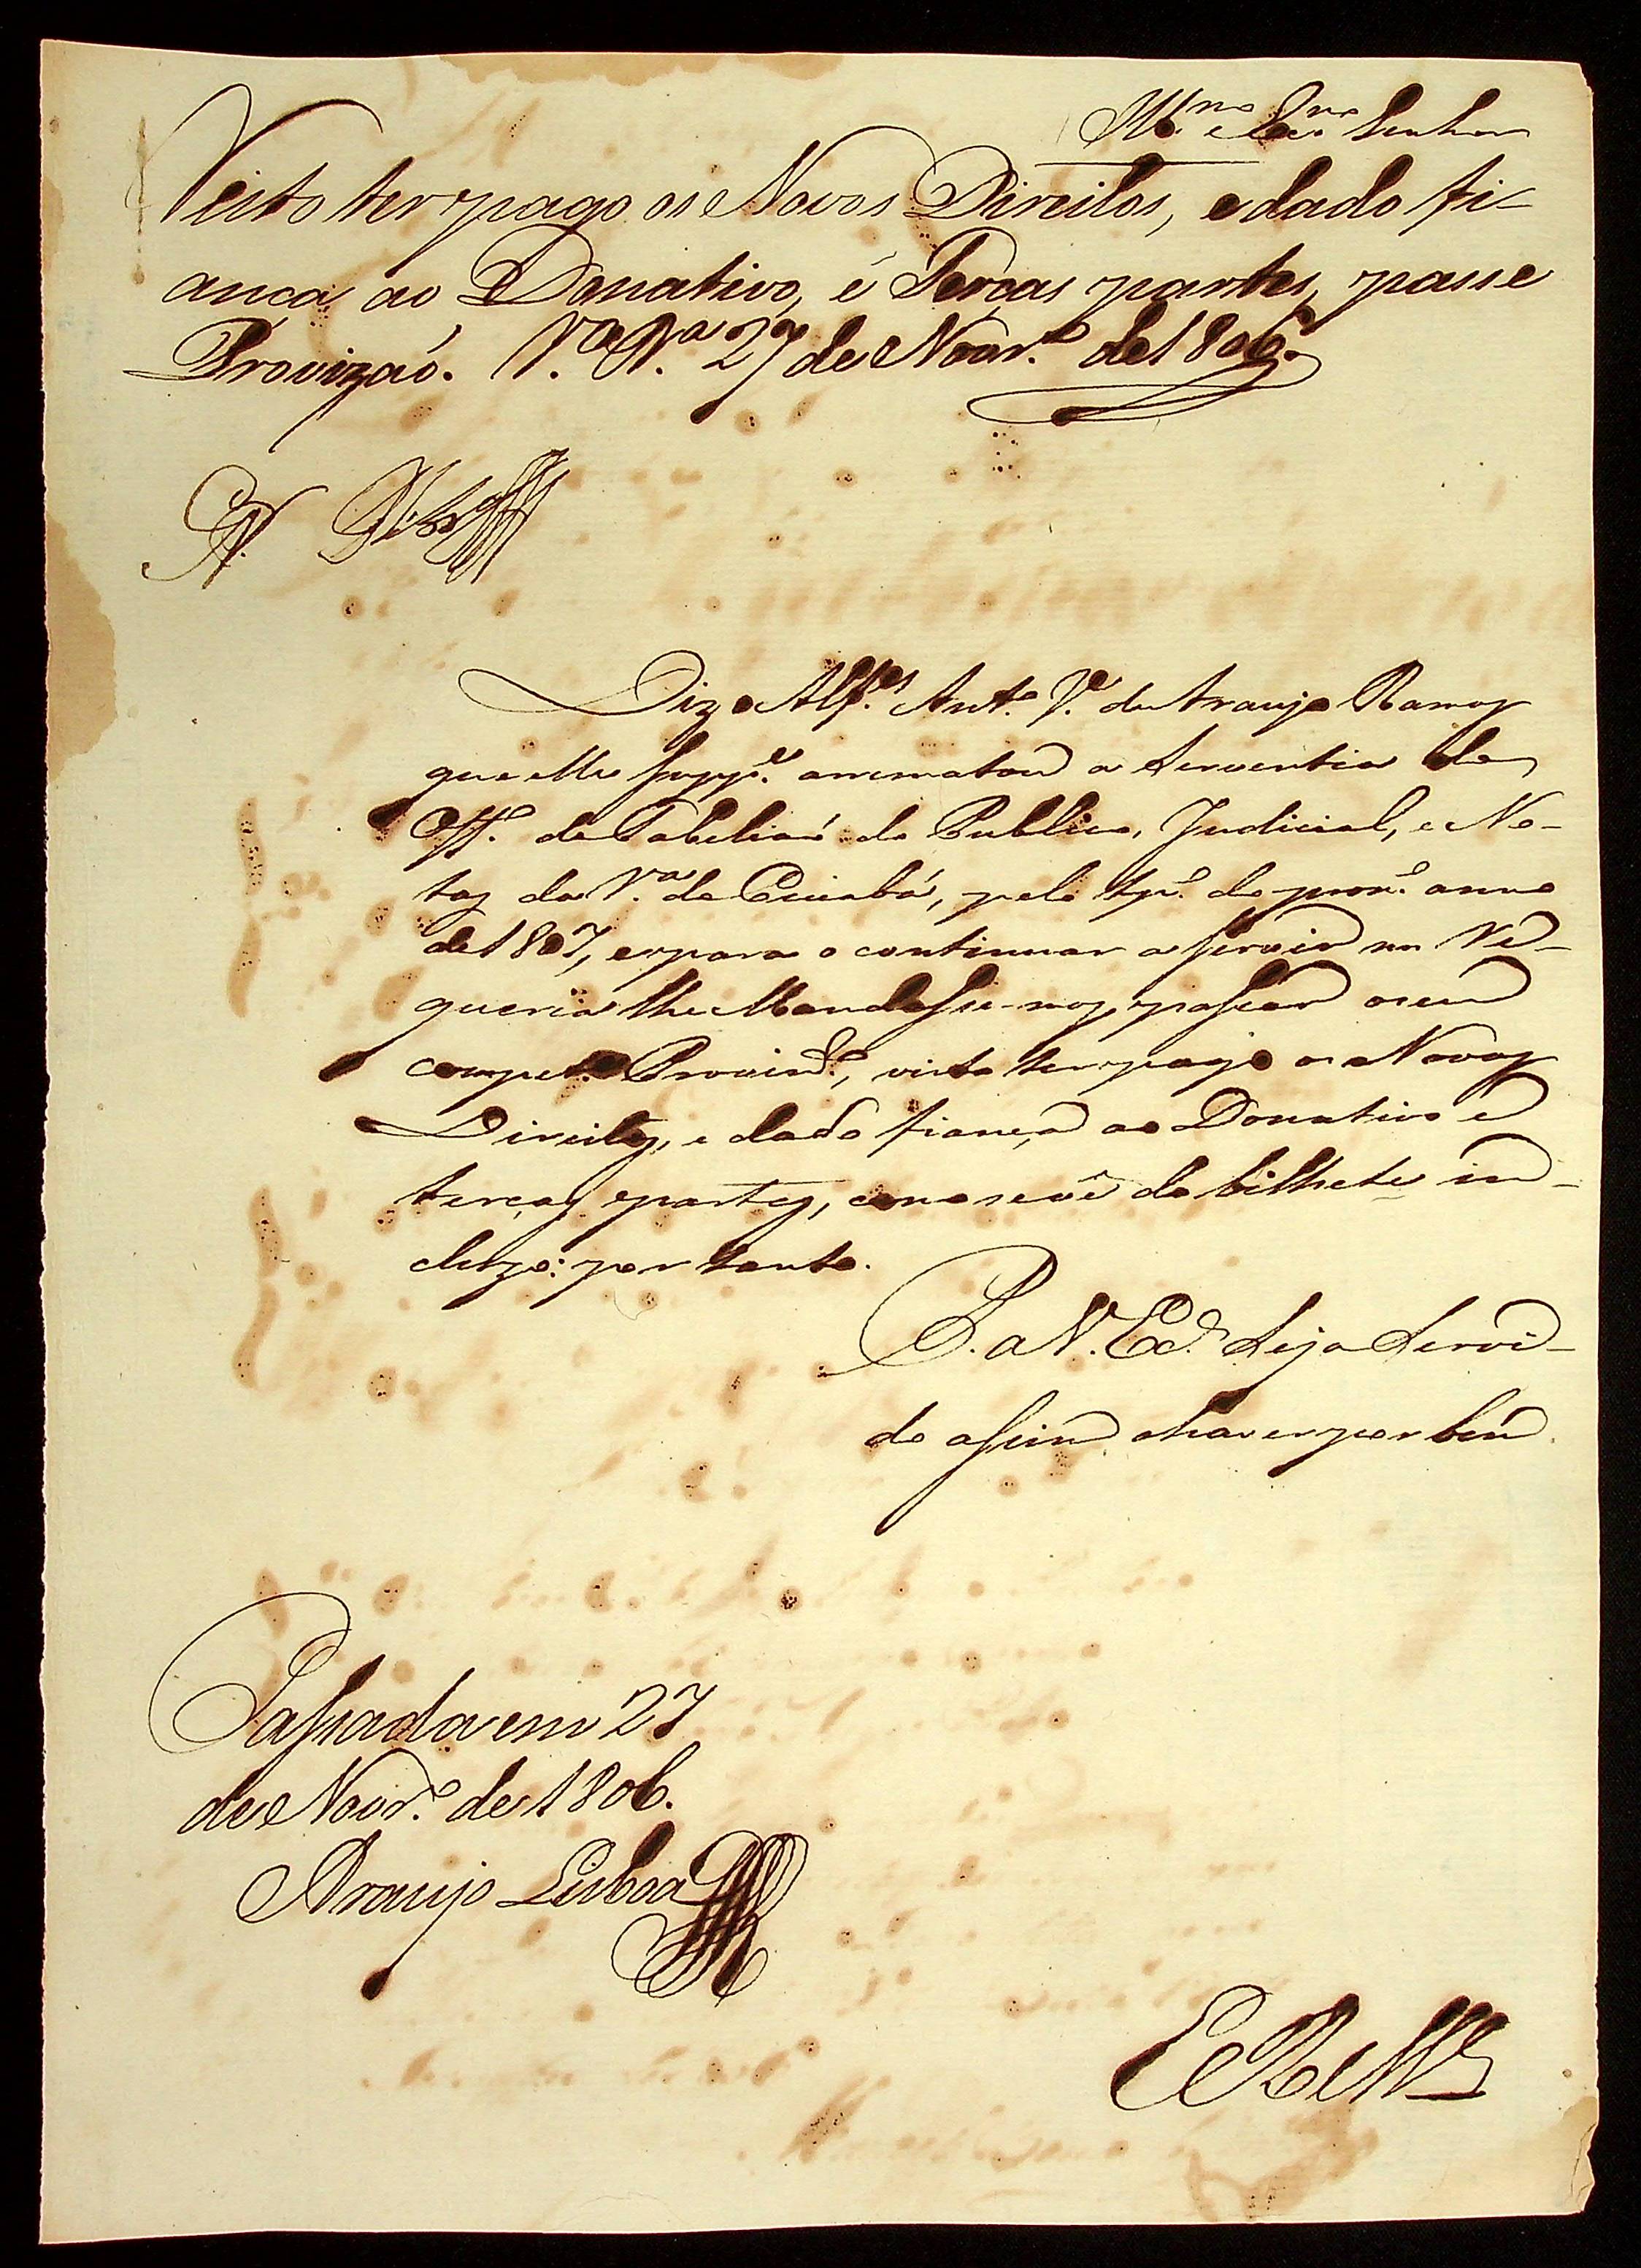 Ill.mo e Ex.mo Senhor
Visto ter pago os Novos Direitos, e dado fi-
anca ao Donativo, e Terças partes, passe
Provizaõ. V.a B.a 27 de Novr.o de 1806.
Diz o Alf.es Ant.o J.e de Araujo Ramos
que elle Supp.e arrematou a Serventia do
Off.o de Tabeliaõ do Publico, Judicial, e No-
tas da V.a do Cuiabá, pelo tp.o do prox.o anno
de 1807, e para o continuar a servir me re-
queria lhe Mandasse-mos passar o seu
compet.e Provim.to, visto ter pago os Novos
Direitos, e dado fiança ao Donativo e
terças partes, como se vê do bilhete in-
cluzo: por tanto.
P. a V. Ex.a Seja Servi-
do assim o haver por bem.
Passada em 27
de Novr.o de 1806.
Araujo Lisboa
E R M.ce